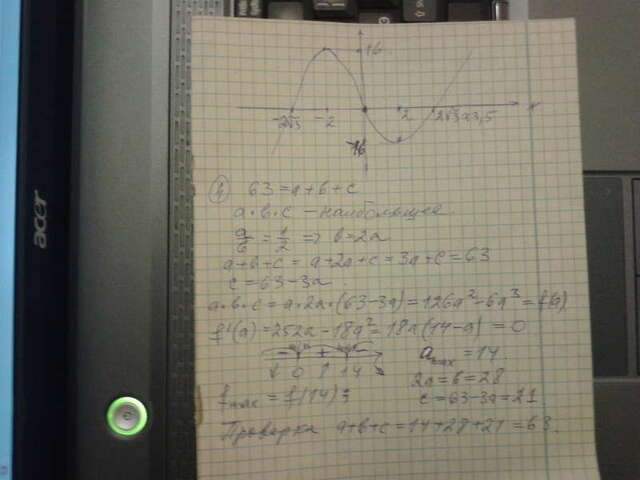 16
-2√3 -2 2 2√3≈3,5 x
-16
4) 63 = a + b + c
a·b·c - наибольшее
a/b = 1/2 => b = 2a
a + b + c = a + 2a + c = 3a + c = 63
c = 63 - 3a
a·b·c = a·2a·(63-3a) = 126a² - 6a³ = f(a)
f'(a) = 252a - 18a² = 18a(14-a) = 0
- 0 + 14
a max = 14.
2a = b = 28
f max = f(14);
c = 63 - 3a = 21
Проверка a+b+c = 14+28+21 = 63.
acer